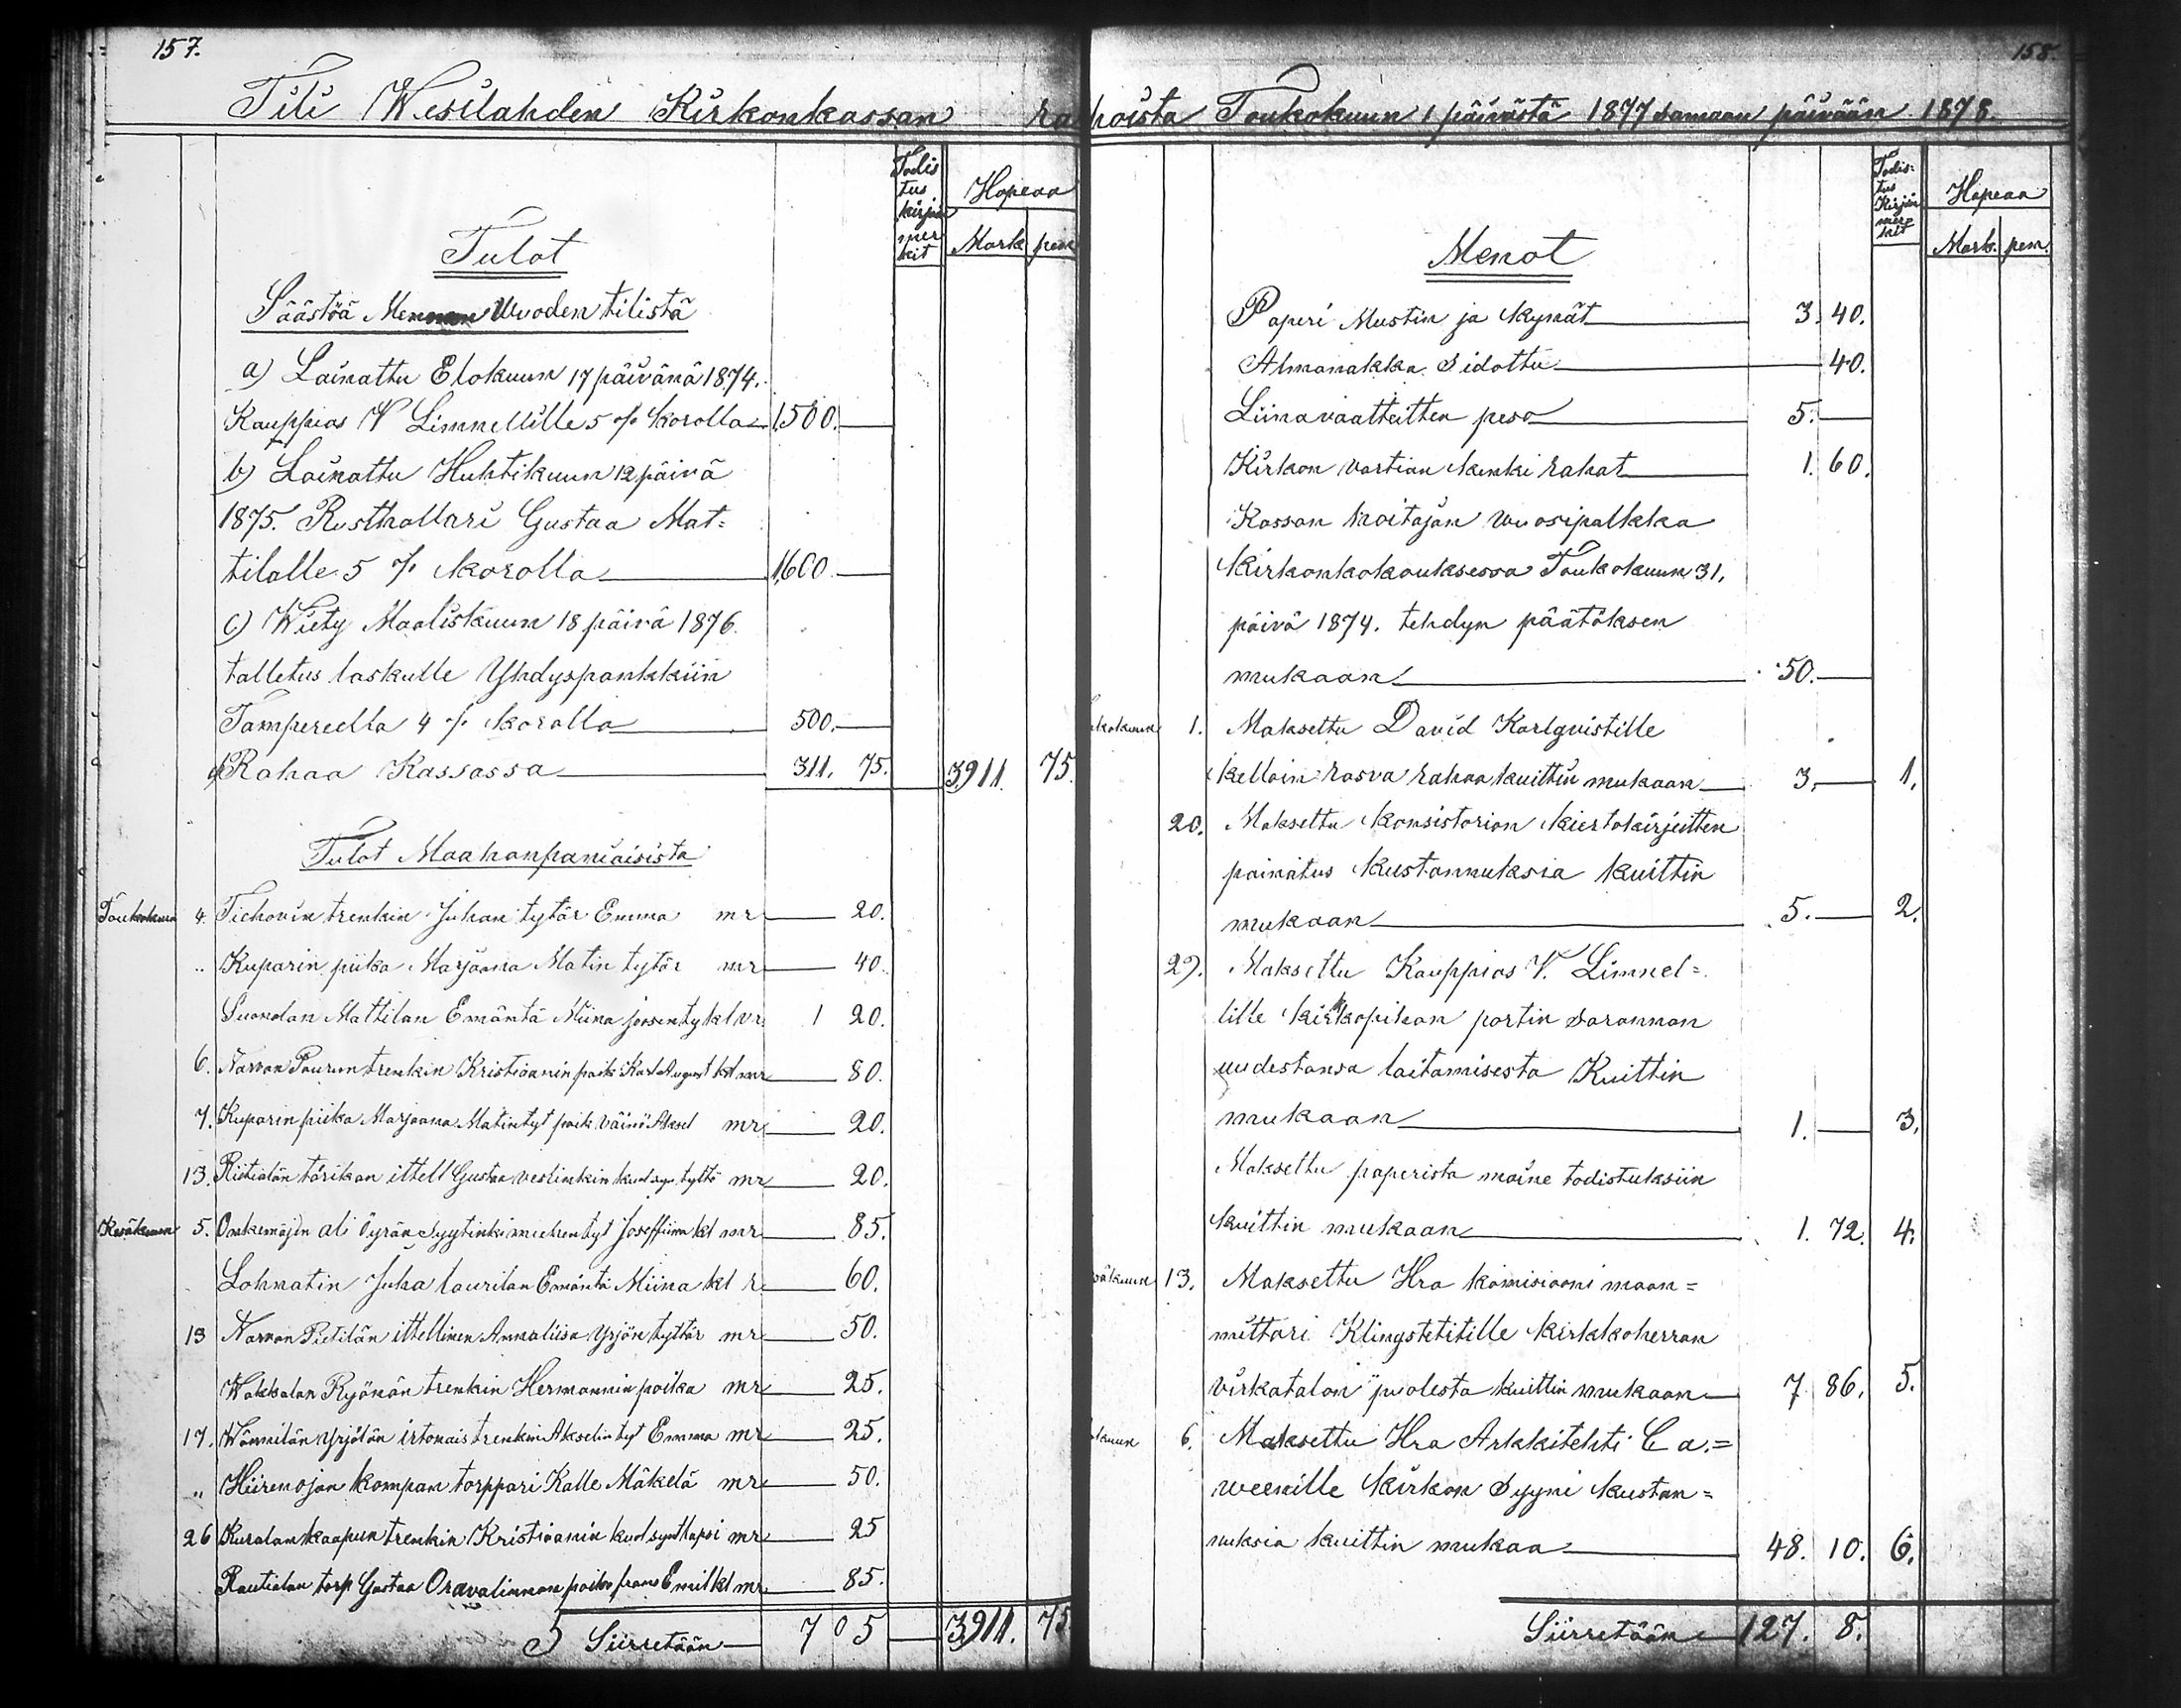 157.
Tili Wesilahden Kirkonkassan
Todis
tus
kirjain
mer
kit
Hopeaa
Mark pen
Tulot
Säästöä Mennen Wuoden tilistä
a) Lainattu Elokuun 17 päivänä 1874.
Kauppias W Limnellille 5 % korolla 1,500. —
b) Lainattu Huhtikuun 12 päivä
1875. Rusthollari Gustaa Mat=
tilalle 5 % korolla 1,600 —
c) Wiety Maaliskuun 18 päivä 1876.
talletus laskulle Yhdyspankkiin
Tampereella 4 % korolla 500. —
d) Rahaa Kassassa 311. 75. 3,911. 75.
Tulot Maahanpaniaisista
Toukokuun 4. Tichovin trenkin Juhan tytär Emma mr — 20.
„ Kuparin piika Marjaana Matin tytär mr — 40.
Suomelan Mattilan Emäntä Miina joosentyt kl vr 1 20.
6. Narvan Paurun trenkin Kristiaanin poik Karl August kl mr — 80.
7. Kuparin piika Marjaana Matintyt poik Väinö Aksel mr — 20.
13. Ristialan torikan ittell Gustaa vestinkin kuol syn tyttö mr — 20.
Kesäkuun 5. Onkemäjen ali Öyrän Syytinkimiehen tyt Joseffiina kl mr — 85.
Lohmatin Juha laurilan Emäntä Miina kl r — 60.
13 Narvan Pietilän ittellinen Annaliisa Yrjön tyttär mr — 50.
Wakkalan Ryönän trenkin Hermannin poika mr — 25.
17. Wännilän Yrjölän irtonais trenkin Akselin tyt Emma mr — 25.
„ Hiirenojan kompan torppari Kalle Mäkelä mr — 50.
26 Kuralan kaapun trenkin Kristiaanin kuol synt lapsi mr — 25
Rautialan torp Gustaa Oravalinnan poika frans Emil kl mr — 85.
Siirretään 7 05 — 3,911. 75
158.
rahoista Toukokuun 1 päivästä 1877 samaan päivään 1878.
Todis=
tus
Kirjain
mer=
kit
Hopeaa
Mark. pen.
Menot
Paperi Mustin ja kynät 3. 40.
Almanakka Sidottu 40.
Liinavaatteitten peso 5. —
Kirkon vartian kenki rahat 1. 60.
Kassan hoitajan wuosipalkka
kirkonkokouksessa Toukokuun 31.
päivä 1874. tehdyn päätöksen
mukaan 50. —
1. Maksettu David Karlqvistille
kelloin rasva rahaa kuittin mukaan 3. — 1.
20. Maksettu konsistorion kiertokirjeitten
painatus kustannuksia kuittin
mukaan 5. — 2.
29. Maksettu Kauppias V. Limnel=
lille kirkkopihan portin saranman
uudestansa laitamisesta Kuittin
mukaan 1. — 3.
Maksettu paperista maine todistuksiin
kuittin mukaan 1. 72. 4.
13. Maksettu Hra komisiooni maan=
mittari Klingstetitille kirkkoherran
virkatalon puolesta kuittin mukaan 7. 86. 5.
6. Maksettu Hra Arkkitehti Ca.=
weenille kirkon syyni kustan=
nuksia kuittin mukaa 48. 10. 6.
Siirretään 127. 8.